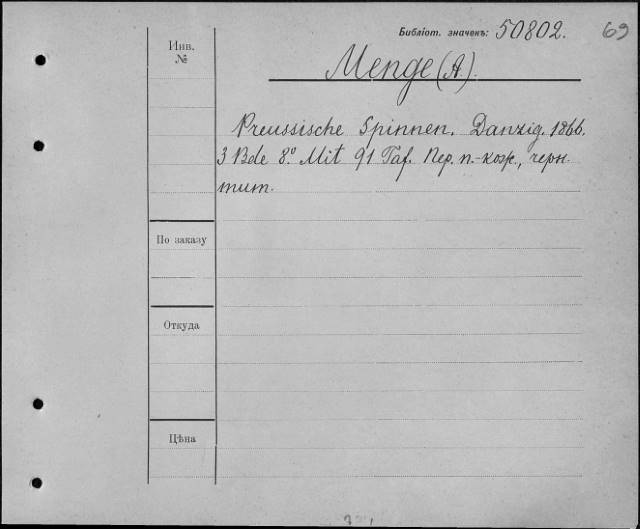 Библіот. значекъ: 50802. 69
Инв.
№
Menge (A.).
Preussische Spinnen. Danzig. 1866.
3 Bde 8.° Mit 91 Taf. Пер. п.-кож., черн.
тит.
По заказу
Откуда
Цѣна